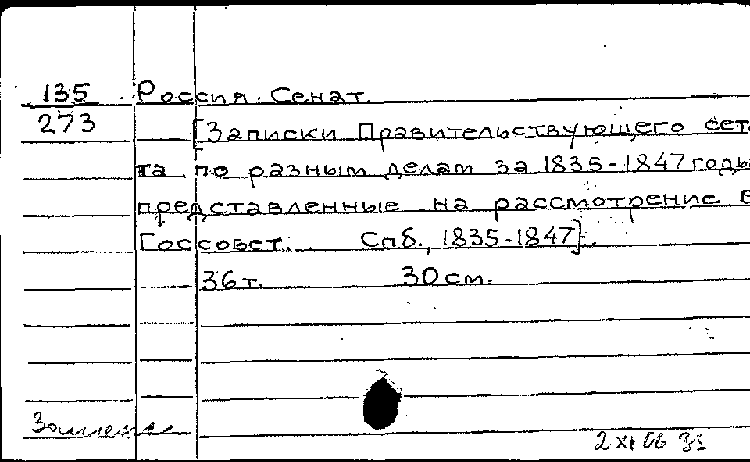 135 Россия. Сенат.
273 [Записки Правительствующего сет
та по разным делам за 1835-1847 годы
представленные на рассмотрение в
Госсовет. Спб., 1835-1847].
36т. 30см.
2 XI 66